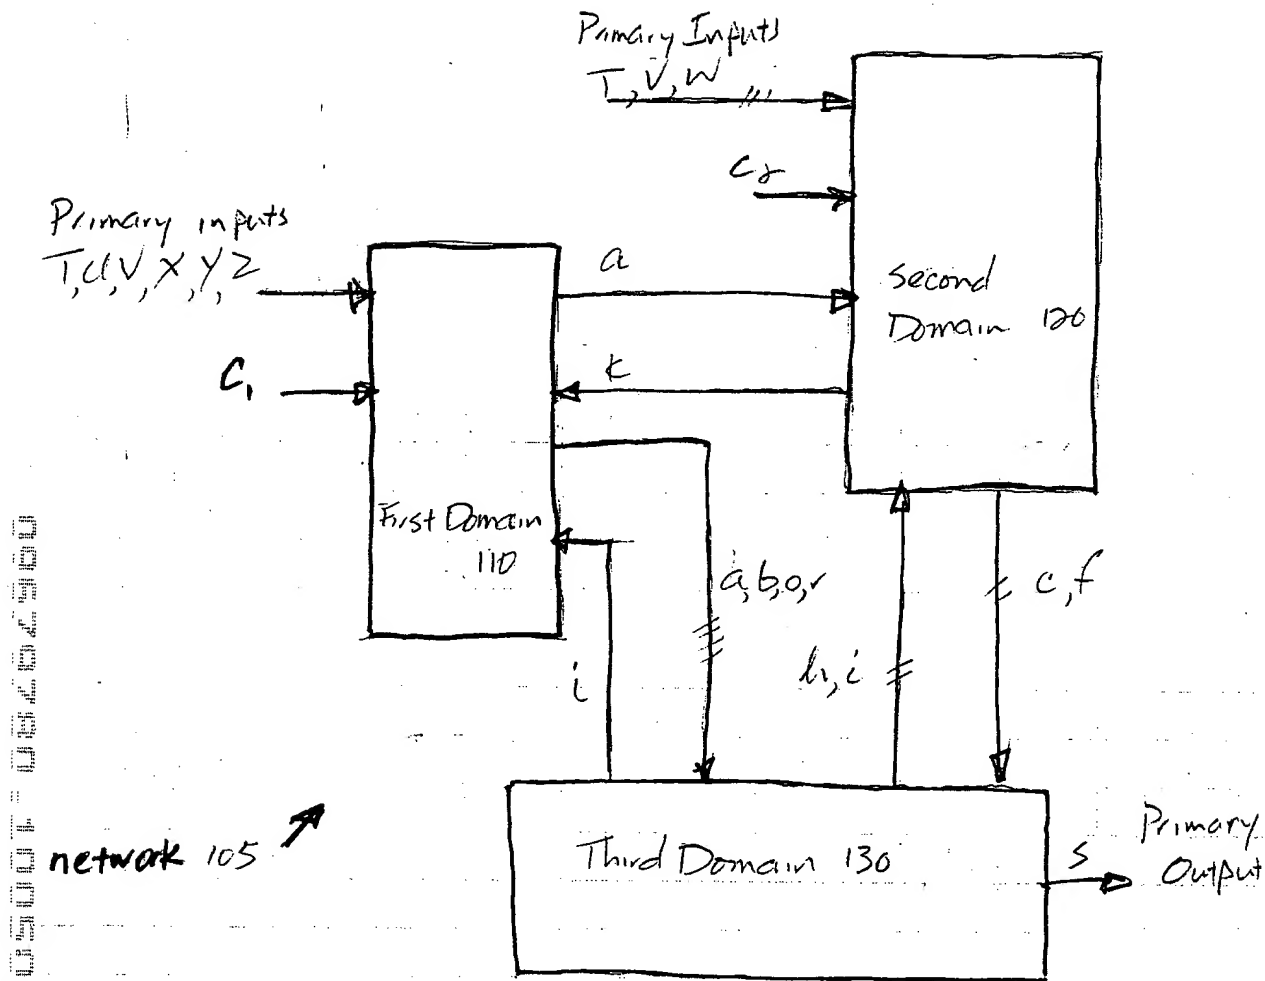 Primary Inputs
T, V, W
C2
Primary inputs
T, U, V, X, Y, Z
C1
a
k
Second
Domain 120
First Domain
110
a, b, o, r
c, f
h, i
i
Third Domain 130
S
Primary
Output
network 105